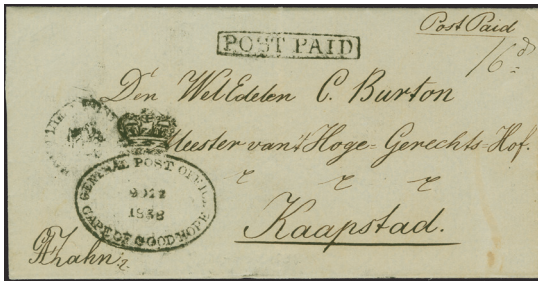 Post Paid
/6 d
POST PAID
Den WelEdelen C. Burton
Meester van't Hoge=Gerechts=Hof.
Kaapstad.
GENERAL POST OFFICE
1838
CAPE OF GOOD HOPE
Zahn